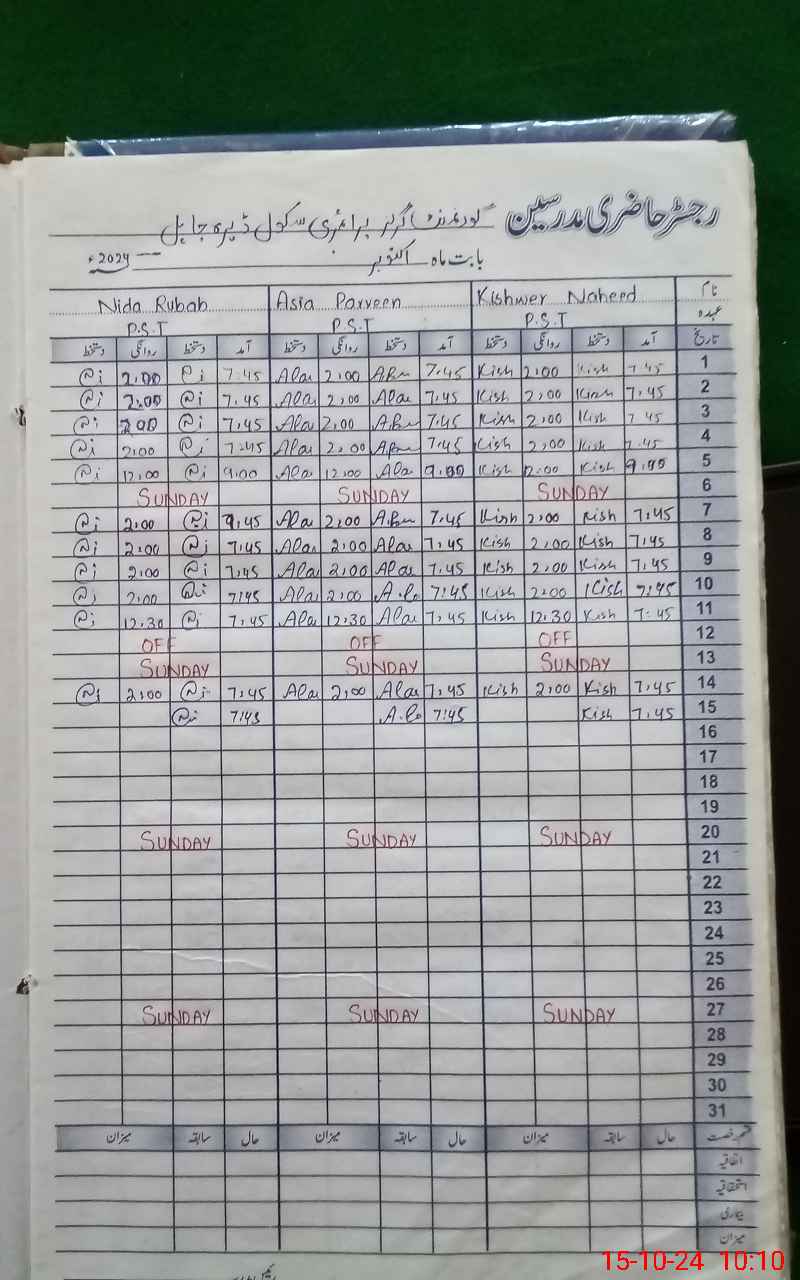 رجسٹر حاضری مدرسین گورنمنٹ گرلز پرائمری سکول ڈیرہ جاہل
بابت ماہ اکتوبر 2024ء
نام Kishwer Naheed Asia Parveen Nida Rubab
عہدہ P.S.T P.S.T P.S.T
تاریخ آمد دستخط روانگی دستخط آمد دستخط روانگی دستخط آمد دستخط روانگی دستخط
1 7:45 Kish 2:00 Kish 7:45 2:00 7:45 2:00
2 7:45 Kish 2:00 Kish 7:45 2:00 7:45 2:00
3 7:45 Kish 2:00 Kish 7:45 2:00 7:45 2:00
4 7:45 Kish 2:00 Kish 7:45 2:00 7:45 2:00
5 Kish Kish 12:00 9:00 12:00
6 SUNDAY SUNDAY SUNDAY
7 7:45 Kish 2:00 Kish 7:45 2:00 2:00
8 7:45 Kish 2:00 Kish 7:45 2:00 7:45 2:00
9 7:45 Kish 2:00 Kish 7:45 2:00 7:45 2:00
10 7:45 Kish 2:00 Kish 7:45 2:00 7:45 2:00
11 7:45 Kish 12:30 Kish 7:45 12:30 7:45 12:30
12 OFF OFF OFF
13 SUNDAY SUNDAY SUNDAY
14 7:45 Kish 2:00 Kish 7:45 2:00 7:45 2:00
15 7:45 Kish 7:45 7:45
16
17
18
19
20 SUNDAY SUNDAY SUNDAY
21
22
23
24
25
26
27 SUNDAY SUNDAY SUNDAY
28
29
30
31
قسم رخصت حال سابقہ میزان حال سابقہ میزان حال سابقہ میزان
اتفاقیہ
استحقاقیہ
بیماری
میزان
15-10-24 10:10